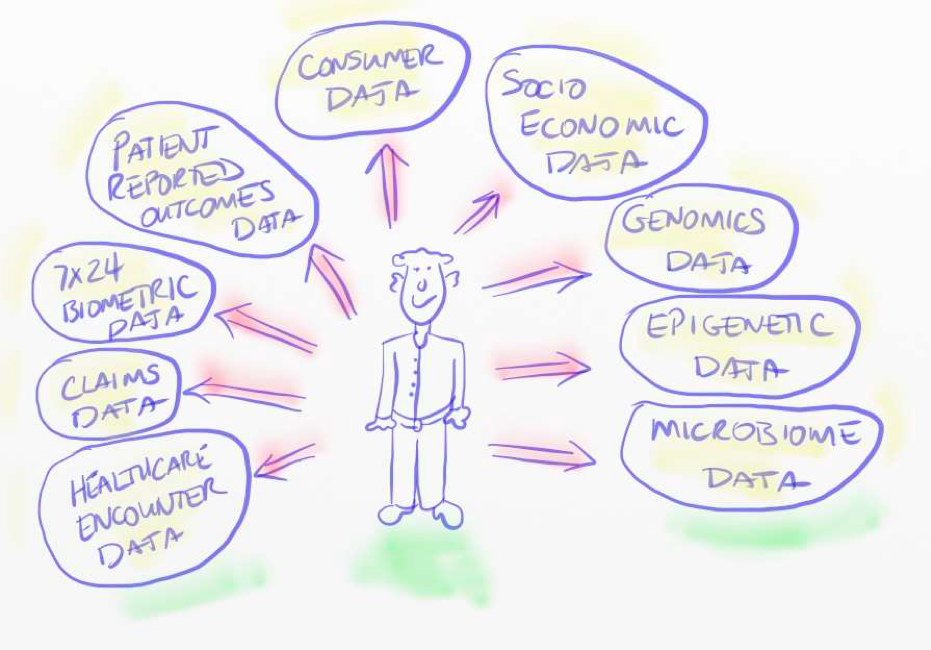 CONSUMER
DATA
SOCIO
ECONOMIC
DATA
PATIENT
REPORTED
OUTCOMES
DATA
GENOMICS
DATA
7x24
BIOMETRIC
DATA
EPIGENETIC
DATA
CLAIMS
DATA
MICROBIOME
DATA
HEALTHCARE
ENCOUNTER
DATA